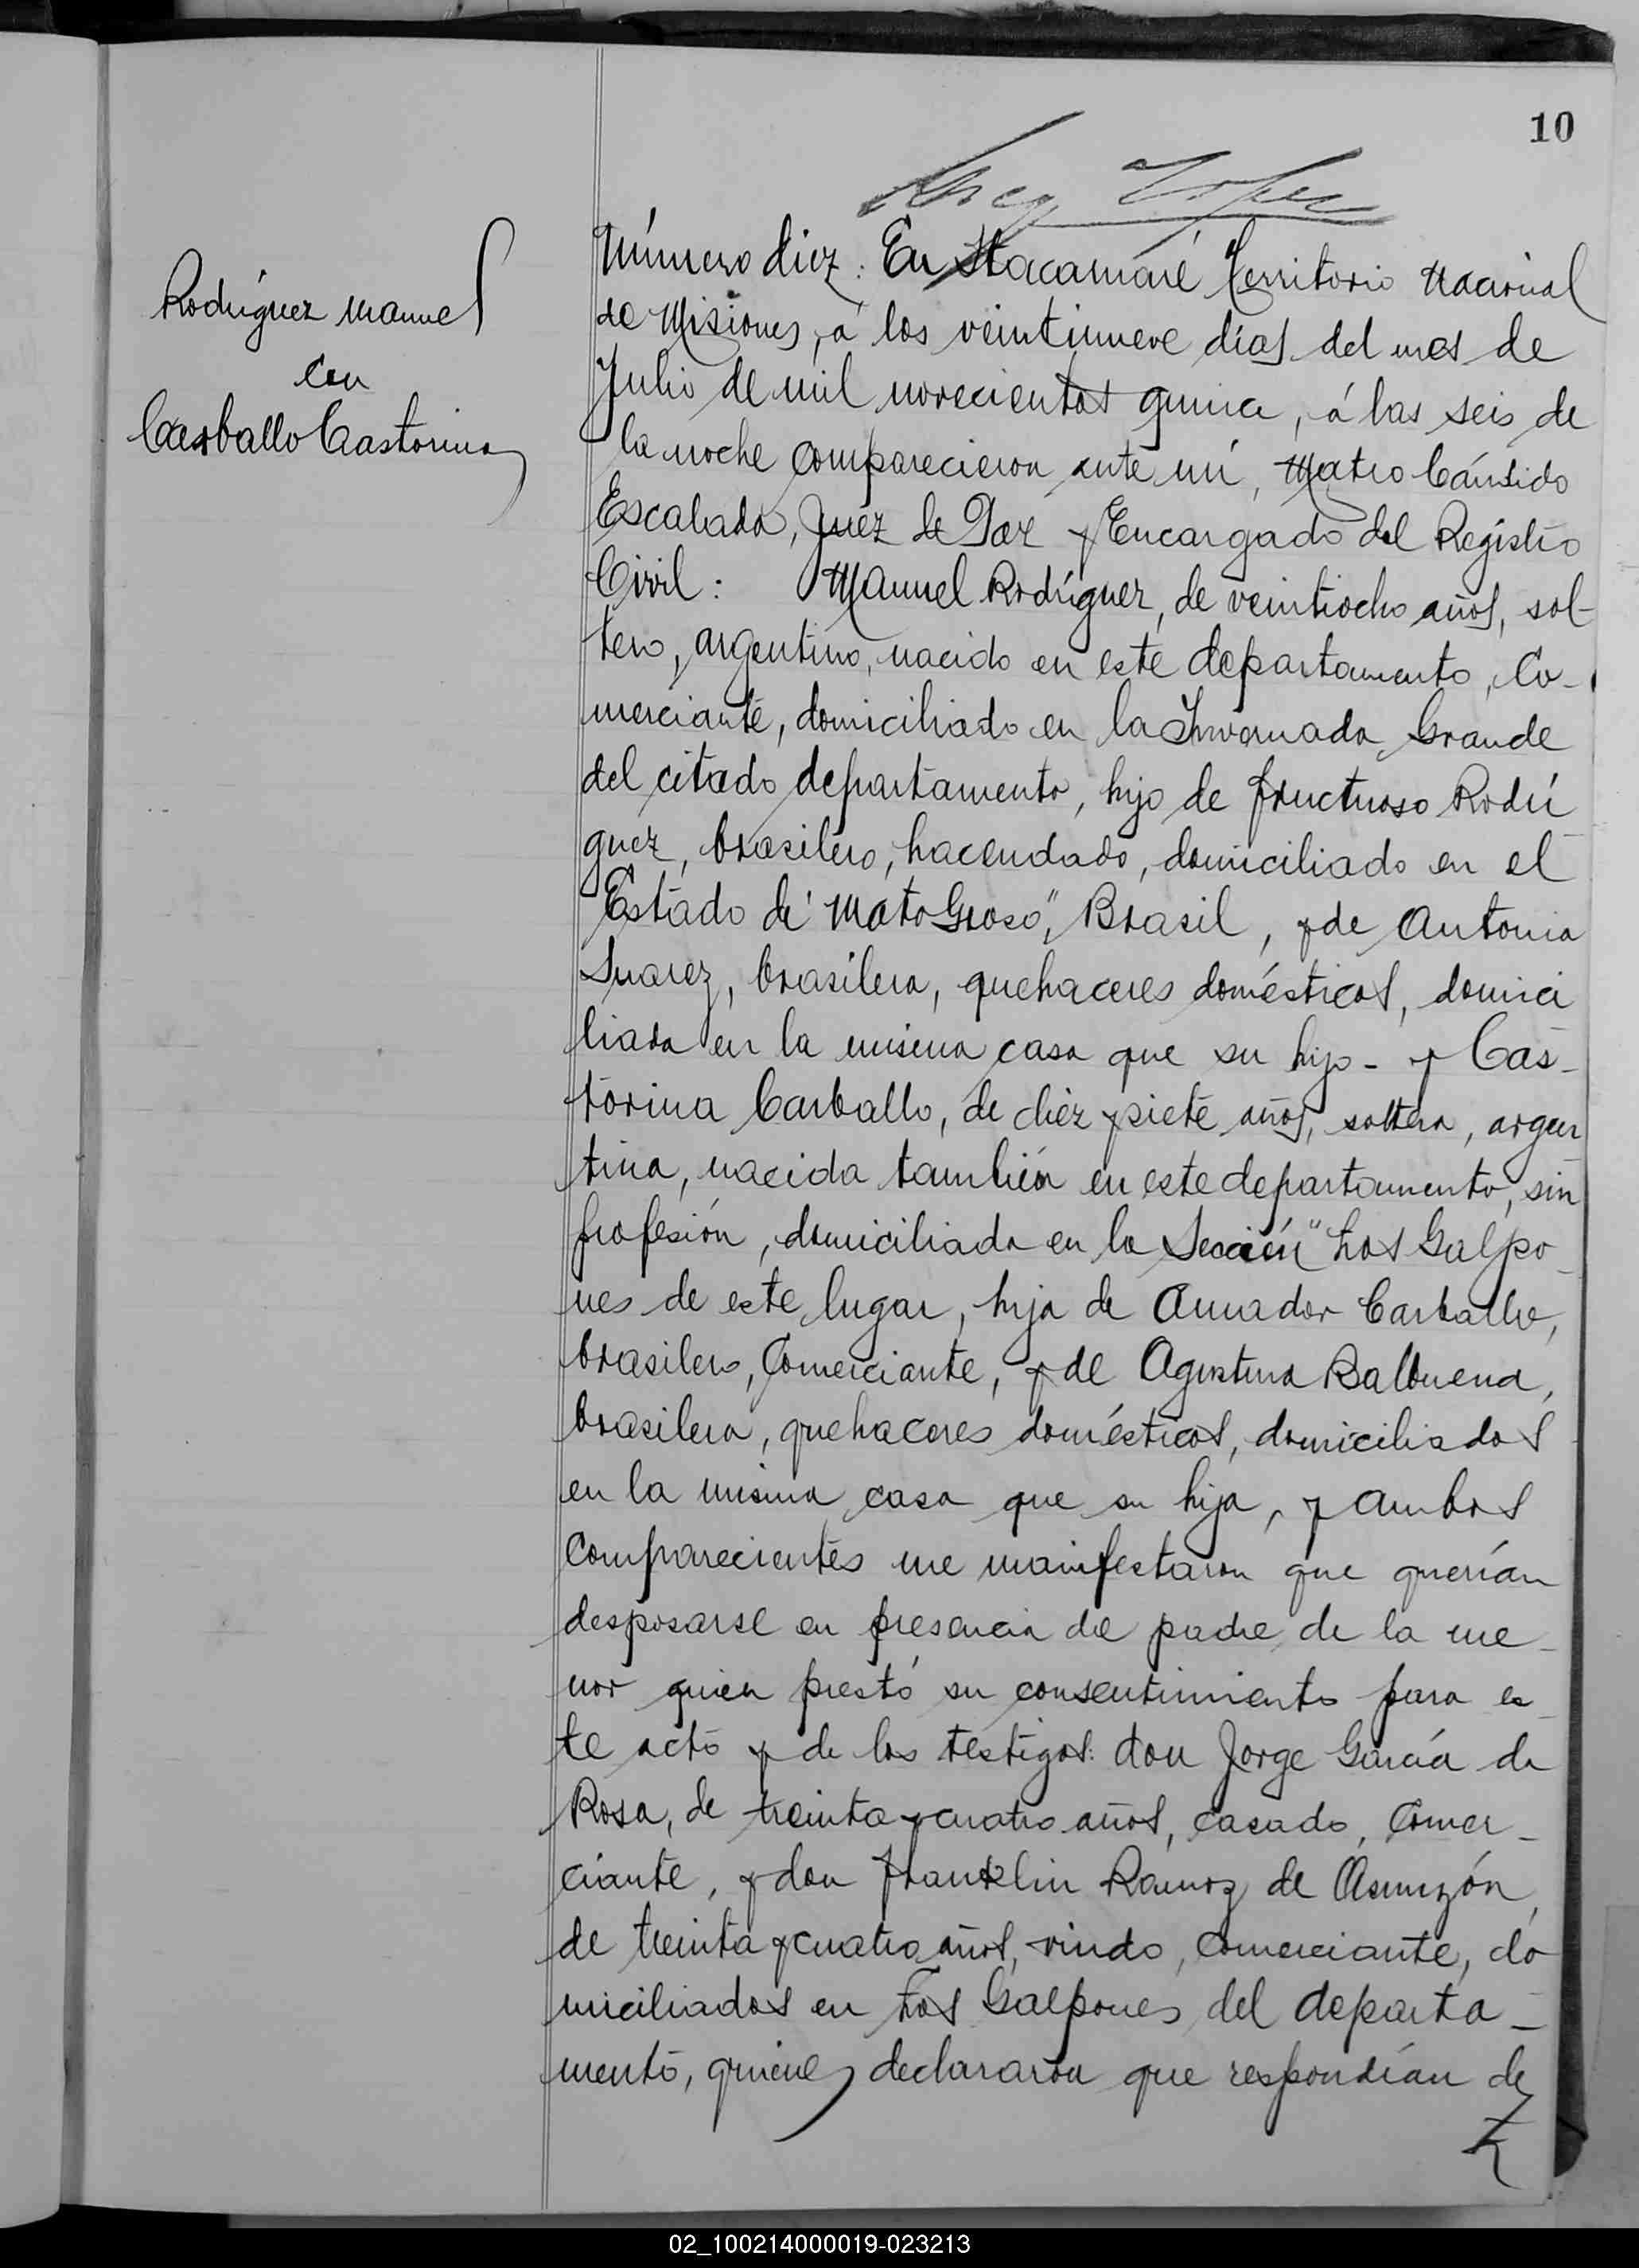 10
Rodríguez Manuel
con
Carballo Castorina
Número diez: En Itacaruaré Territorio Nacional
de Misiones, á los veintinueve días del mes de
Julio de mil novecientos quince, á las seis de
la noche comparecieron ante mí, Mateo Cándido
Escalada, Juez de Paz y Encargado del Registro
Civil: Manuel Rodríguez, de veintiocho años, sol-
tero, argentino, nacido en este departamento, Co-
merciante, domiciliado en la Invernada Grande
del citado departamento, hijo de Fructuoso Rodrí
guez, brasilero, hacendado, domiciliado en el
Estado de "Mato Groso", Brasil, y de Antonia
Suarez, brasilera, quehaceres domésticos, domici
liada en la misma casa que su hijo - y Cas-
torina Carballo, de diez y siete años, soltera, argen
tina, nacida también en este departamento, sin
profesión, domiciliada en la Sección "Los Galpo-
nes de este lugar, hija de Amador Carballo,
brasilero, Comerciante, y de Agustina Balbuena,
brasilera, quehaceres domésticos, domiciliados
en la misma casa que su hija, y ambos
comparecientes me manifestaron que querían
desposarse en presencia del padre de la me-
nor quien prestó su consentimiento para es-
te acto y de los testigos: don Jorge García da
Rosa, de treinta y cuatro años, casado, Comer-
ciante, y don Franklin Ramoz de Asunzón,
de treinta y cuatro años, viudo, comerciante, do
miciliados en Los Galpones del departa-
mento, quienes declararon que respondían de
02_100214000019-023213